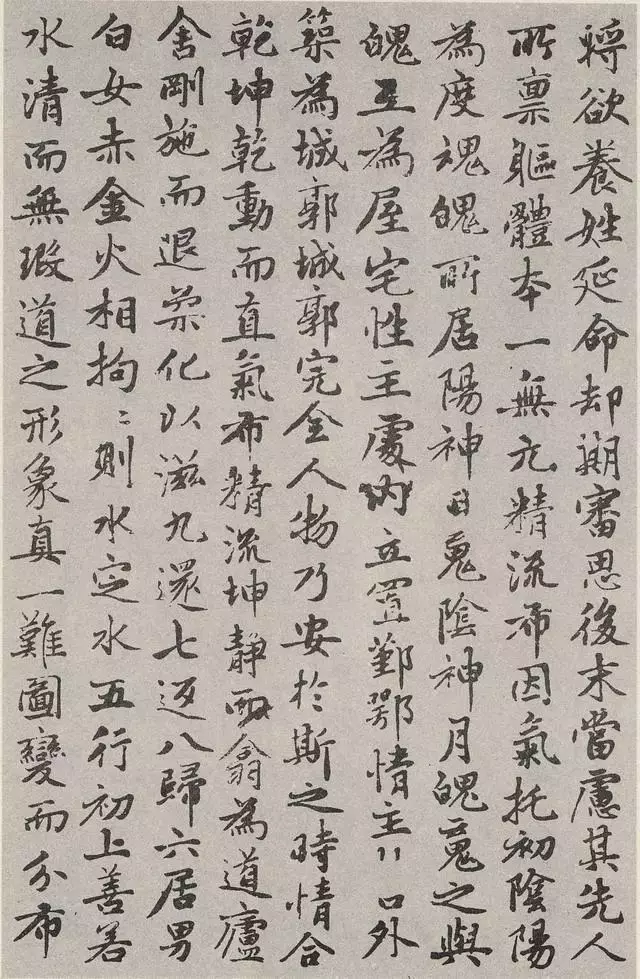 將欲養姓延命却期審思後末當慮其先人
所禀軀體本一無元精流布因氣托初陰陽
為度魂魄所居陽神日䰟陰神月魄䰟之與
魄互為屋宅性主處內立置鄞鄂情主〻口外
築為城郭城郭完全人物乃安於斯之時情合
乾坤乾動而直氣布精流坤靜而翕為道廬
舍剛施而退柔化以滋九還七返八歸六居男
白女赤金火相拘〻則水定水五行初上善若
水清而無瑕道之形象真一難圖變而分布